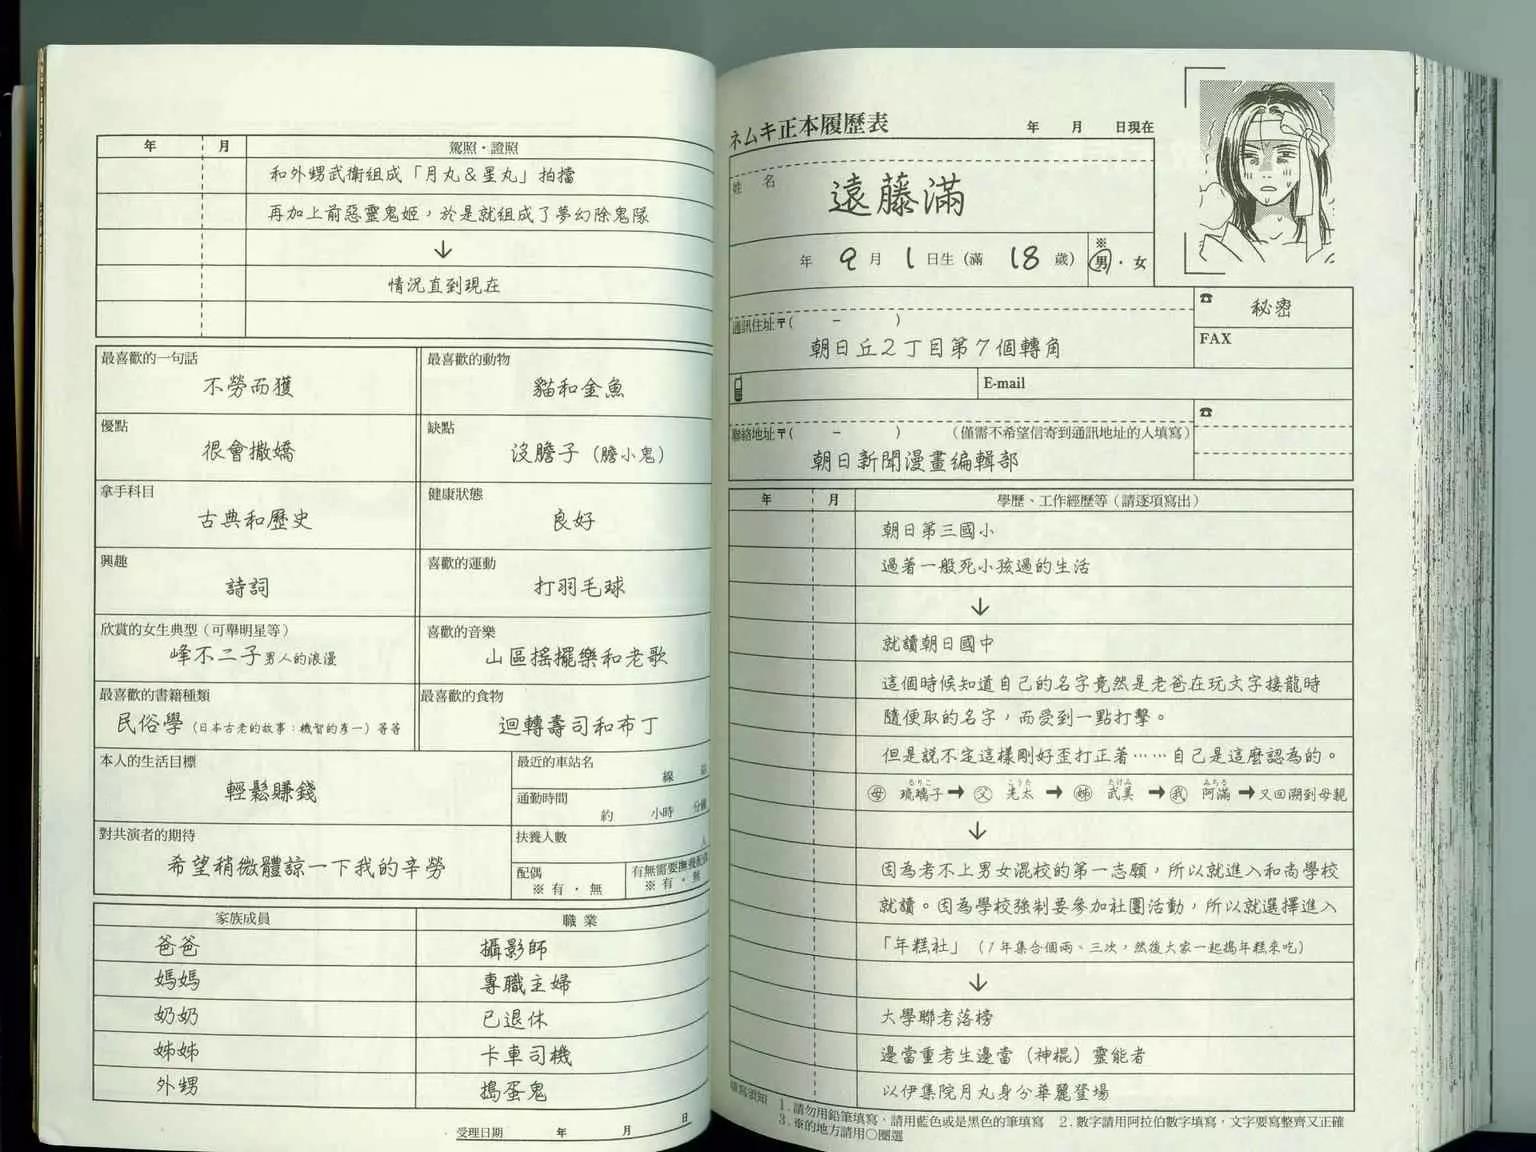 年 月 駕照・證照
和外甥武衛組成「月丸＆星丸」拍擋
再加上前惡靈鬼姬，於是就組成了夢幻除鬼隊
↓
情況直到現在
最喜歡的一句話
不勞而獲
最喜歡的動物
貓和金魚
優點
很會撒嬌
缺點
沒膽子（膽小鬼）
拿手科目
古典和歷史
健康狀態
良好
興趣
詩詞
喜歡的運動
打羽毛球
欣賞的女生典型（可舉明星等）
峰不二子男人的浪漫
喜歡的音樂
山區搖擺樂和老歌
最喜歡的書籍種類
民俗學（日本古老的故事：機智的彥一）等等
最喜歡的食物
迴轉壽司和布丁
本人的生活目標
輕鬆賺錢
最近的車站名
線
通勤時間
約 小時 分鐘
對共演者的期待
希望稍微體諒一下我的辛勞
扶養人數
人
配偶
※有・無
有無需要撫養配偶
※有・無
家族成員 職業
爸爸 攝影師
媽媽 專職主婦
奶奶 已退休
姊姊 卡車司機
外甥 搗蛋鬼
受理日期 年 月 日
ネムキ正本履歷表 年 月 日現在
姓 名
遠藤滿
年 9 月 1 日生（滿 18 歲）
※
男・女
通訊住址〒（ － ）
朝日丘２丁目第７個轉角
☎ 秘密
FAX
E-mail
聯絡地址〒（ － ）（僅需不希望信寄到通訊地址的人填寫）
朝日新聞漫畫編輯部
☎
年 月 學歷、工作經歷等（請逐項寫出）
朝日第三國小
過著一般死小孩過的生活
↓
就讀朝日國中
這個時候知道自己的名字竟然是老爸在玩文字接龍時
隨便取的名字，而受到一點打擊。
但是說不定這樣剛好歪打正著……自己是這麼認為的。
るりこ こうた たけみ みちる
母 琉璃子➡父 光太➡姊 武美➡我 阿滿➡又回溯到母親
↓
因為考不上男女混校的第一志願，所以就進入和尚學校
就讀。因為學校強制要參加社團活動，所以就選擇進入
「年糕社」（1年集合個兩、三次，然後大家一起搗年糕來吃）
↓
大學聯考落榜
邊當重考生邊當（神棍）靈能者
以伊集院月丸身分華麗登場
填寫須知 1.請勿用鉛筆填寫，請用藍色或是黑色的筆填寫 2.數字請用阿拉伯數字填寫，文字要寫整齊又正確
3.※的地方請用○圈選